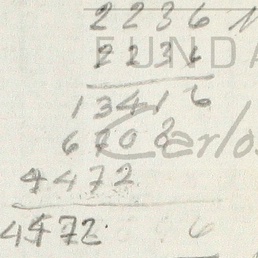 2236
FUNDA
2236
13416
6708
Carlos
4472
4472 6